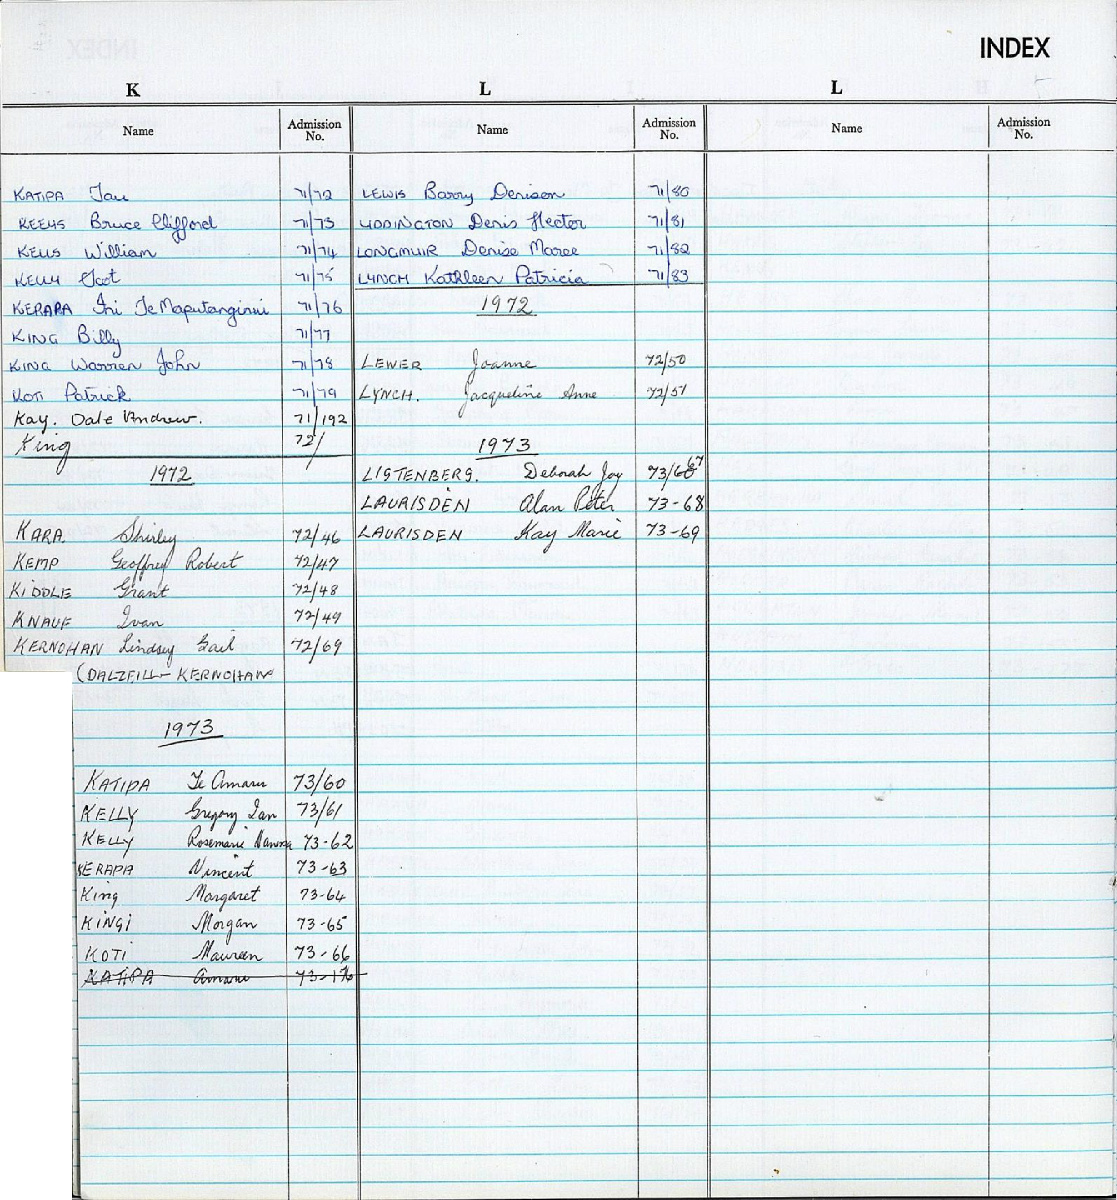 INDEX
K
Name Admission No.
KATIPA Tau 71/72
KEENS Bruce Clifford 71/73
KELLS William 71/74
KELLY Scot 71/75
KERAPA Iri Te Maputanginui 71/76
KING Billy 71/77
KING Warren John 71/78
KOTI Patrick 71/79
Kay. Dale Andrew. 71/192
King 72/
1972
KARA Shirley 72/46
KEMP Geoffrey Robert 72/47
KIDDLE Grant 72/48
KNAUF Ivan 72/49
KERNOHAN Lindsey Gail 72/69
(DALZEILL - KERNOHAN
1973
KATIPA Te Amaru 73/60
KELLY Gregory Ian 73/61
KELLY Rosemarie 73-62
KERAPA Vincent 73-63
King Margaret 73-64
KINGI Morgan 73-65
KOTI Maureen 73-66
KATIPA Amaru 73-176
L
Name Admission No.
LEWIS Barry Denison 71/80
LIDDINGTON Denis Hector 71/81
LONGMUIR Denise Maree 71/82
LYNCH Kathleen Patricia 71/83
1972
LEWER Joanne 72/50
LYNCH. Jacqueline Anne 72/51
1973
LISTENBERG. Deborah Joy 73/67
LAURISDEN Alan Peter 73-68
LAURISDEN Kay Marie 73-69
L
Name Admission No.